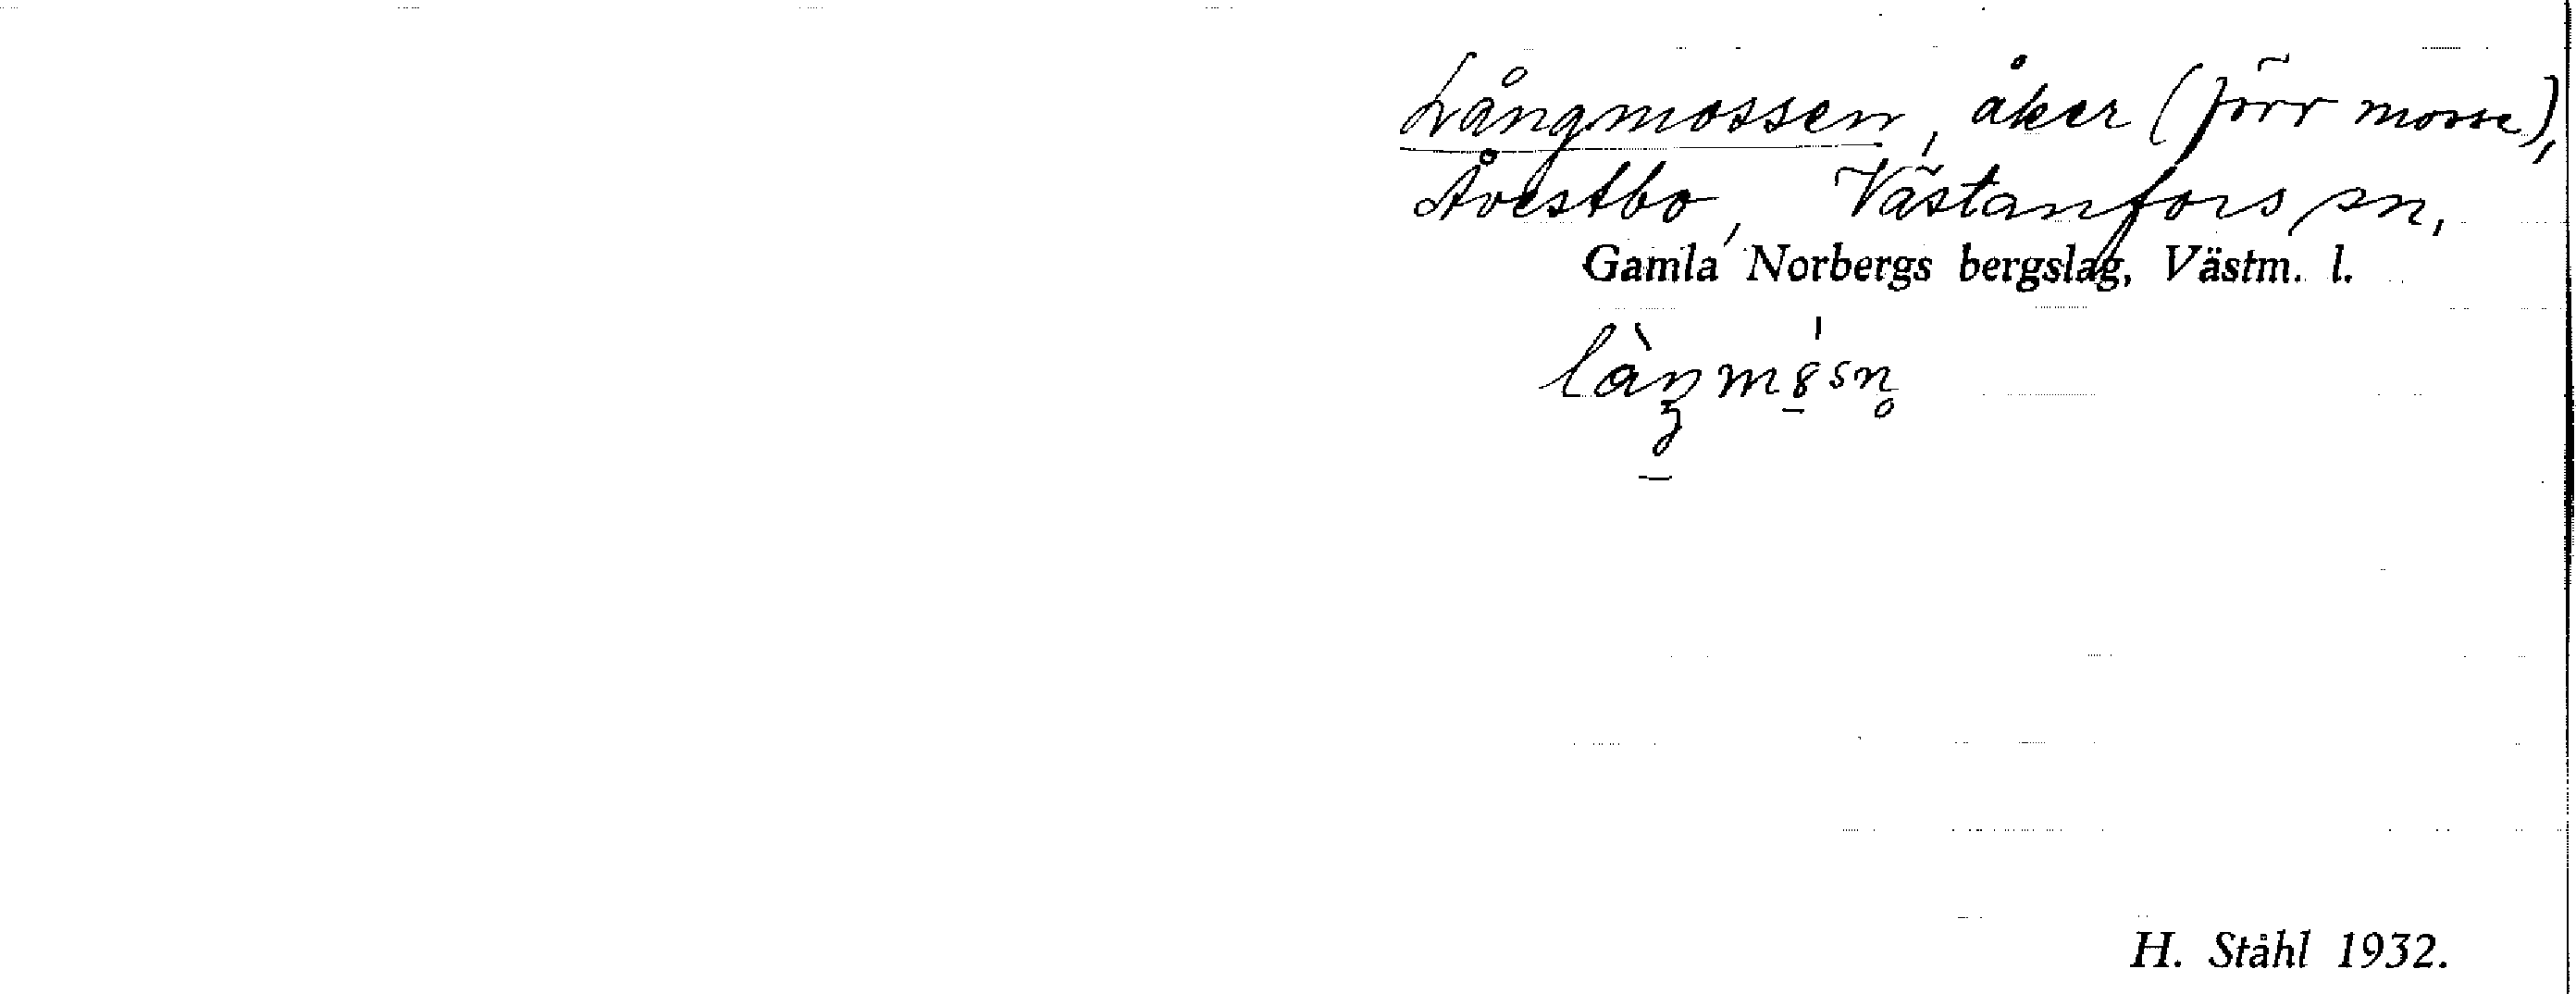 Långmossen, åker (förr mosse),
Åvestbo, Västanfors sn,
Gamla Norbergs bergslag, Västm. l.
H. Ståhl 1932.